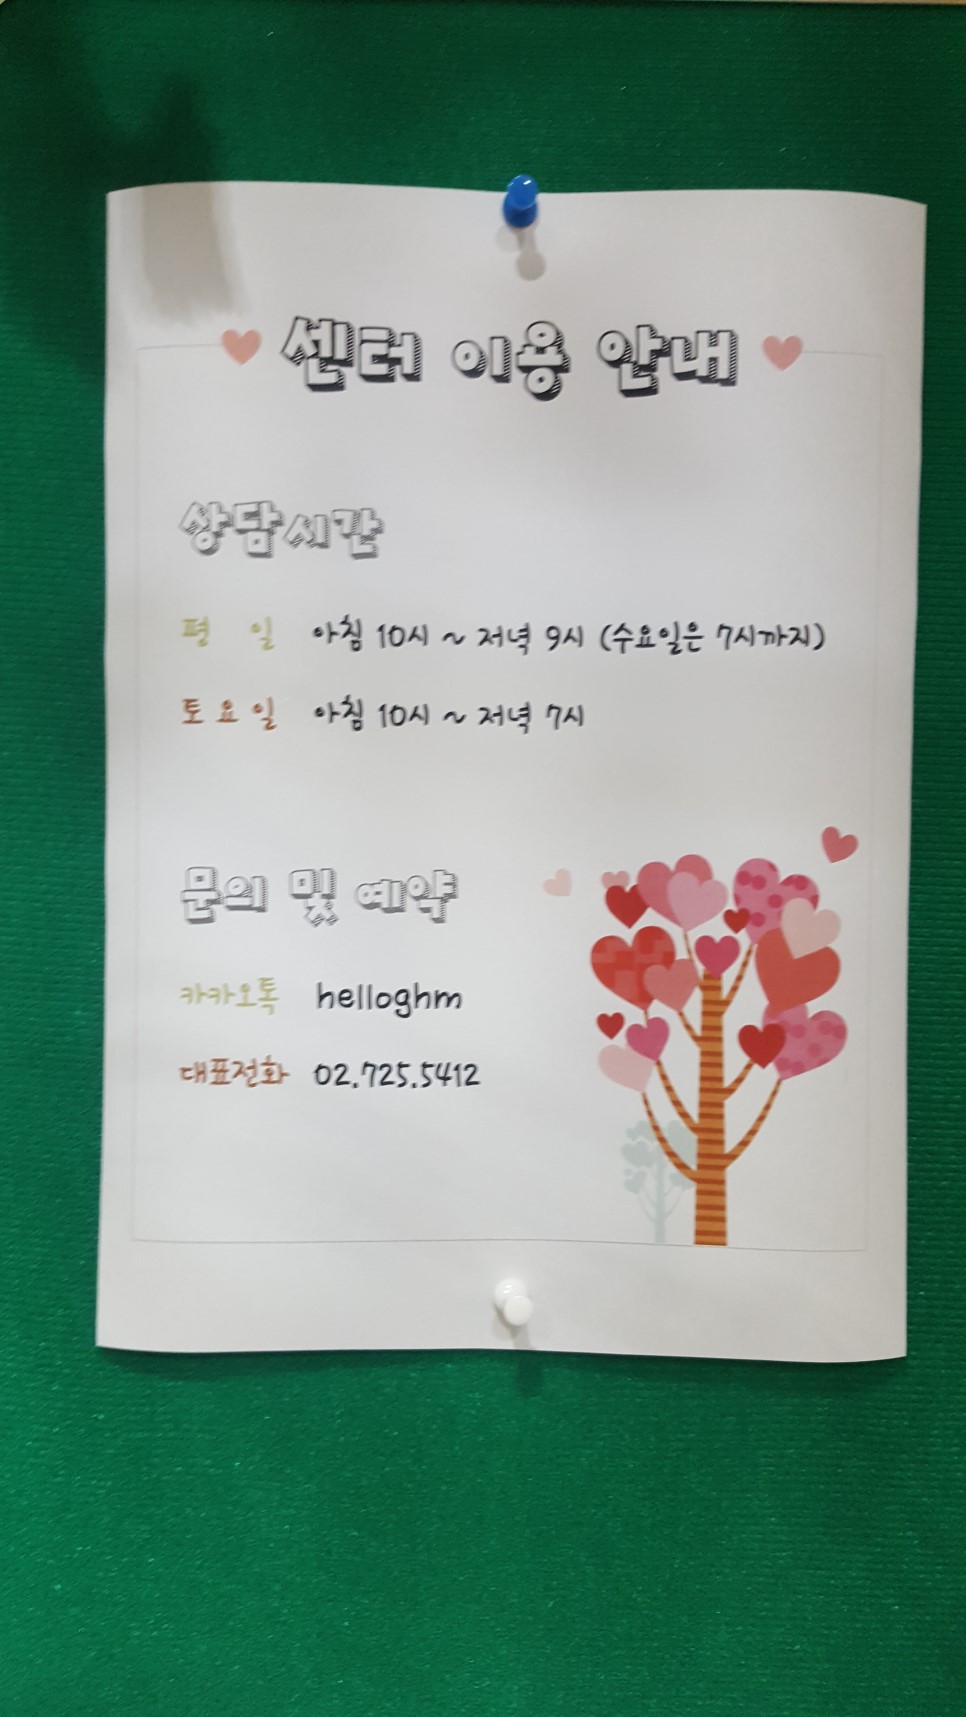 센터 이용 안내
상담시간
평 일 아침 10시 ~ 저녁 9시 (수요일은 7시까지)
토요일 아침 10시 ~ 저녁 7시
문의 및 예약
카카오톡 helloghm
대표전화 02.725.5412